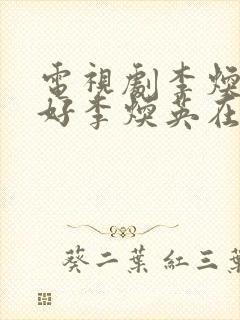 電視劇李煥
好李煥英在
葵二葉紅三葉